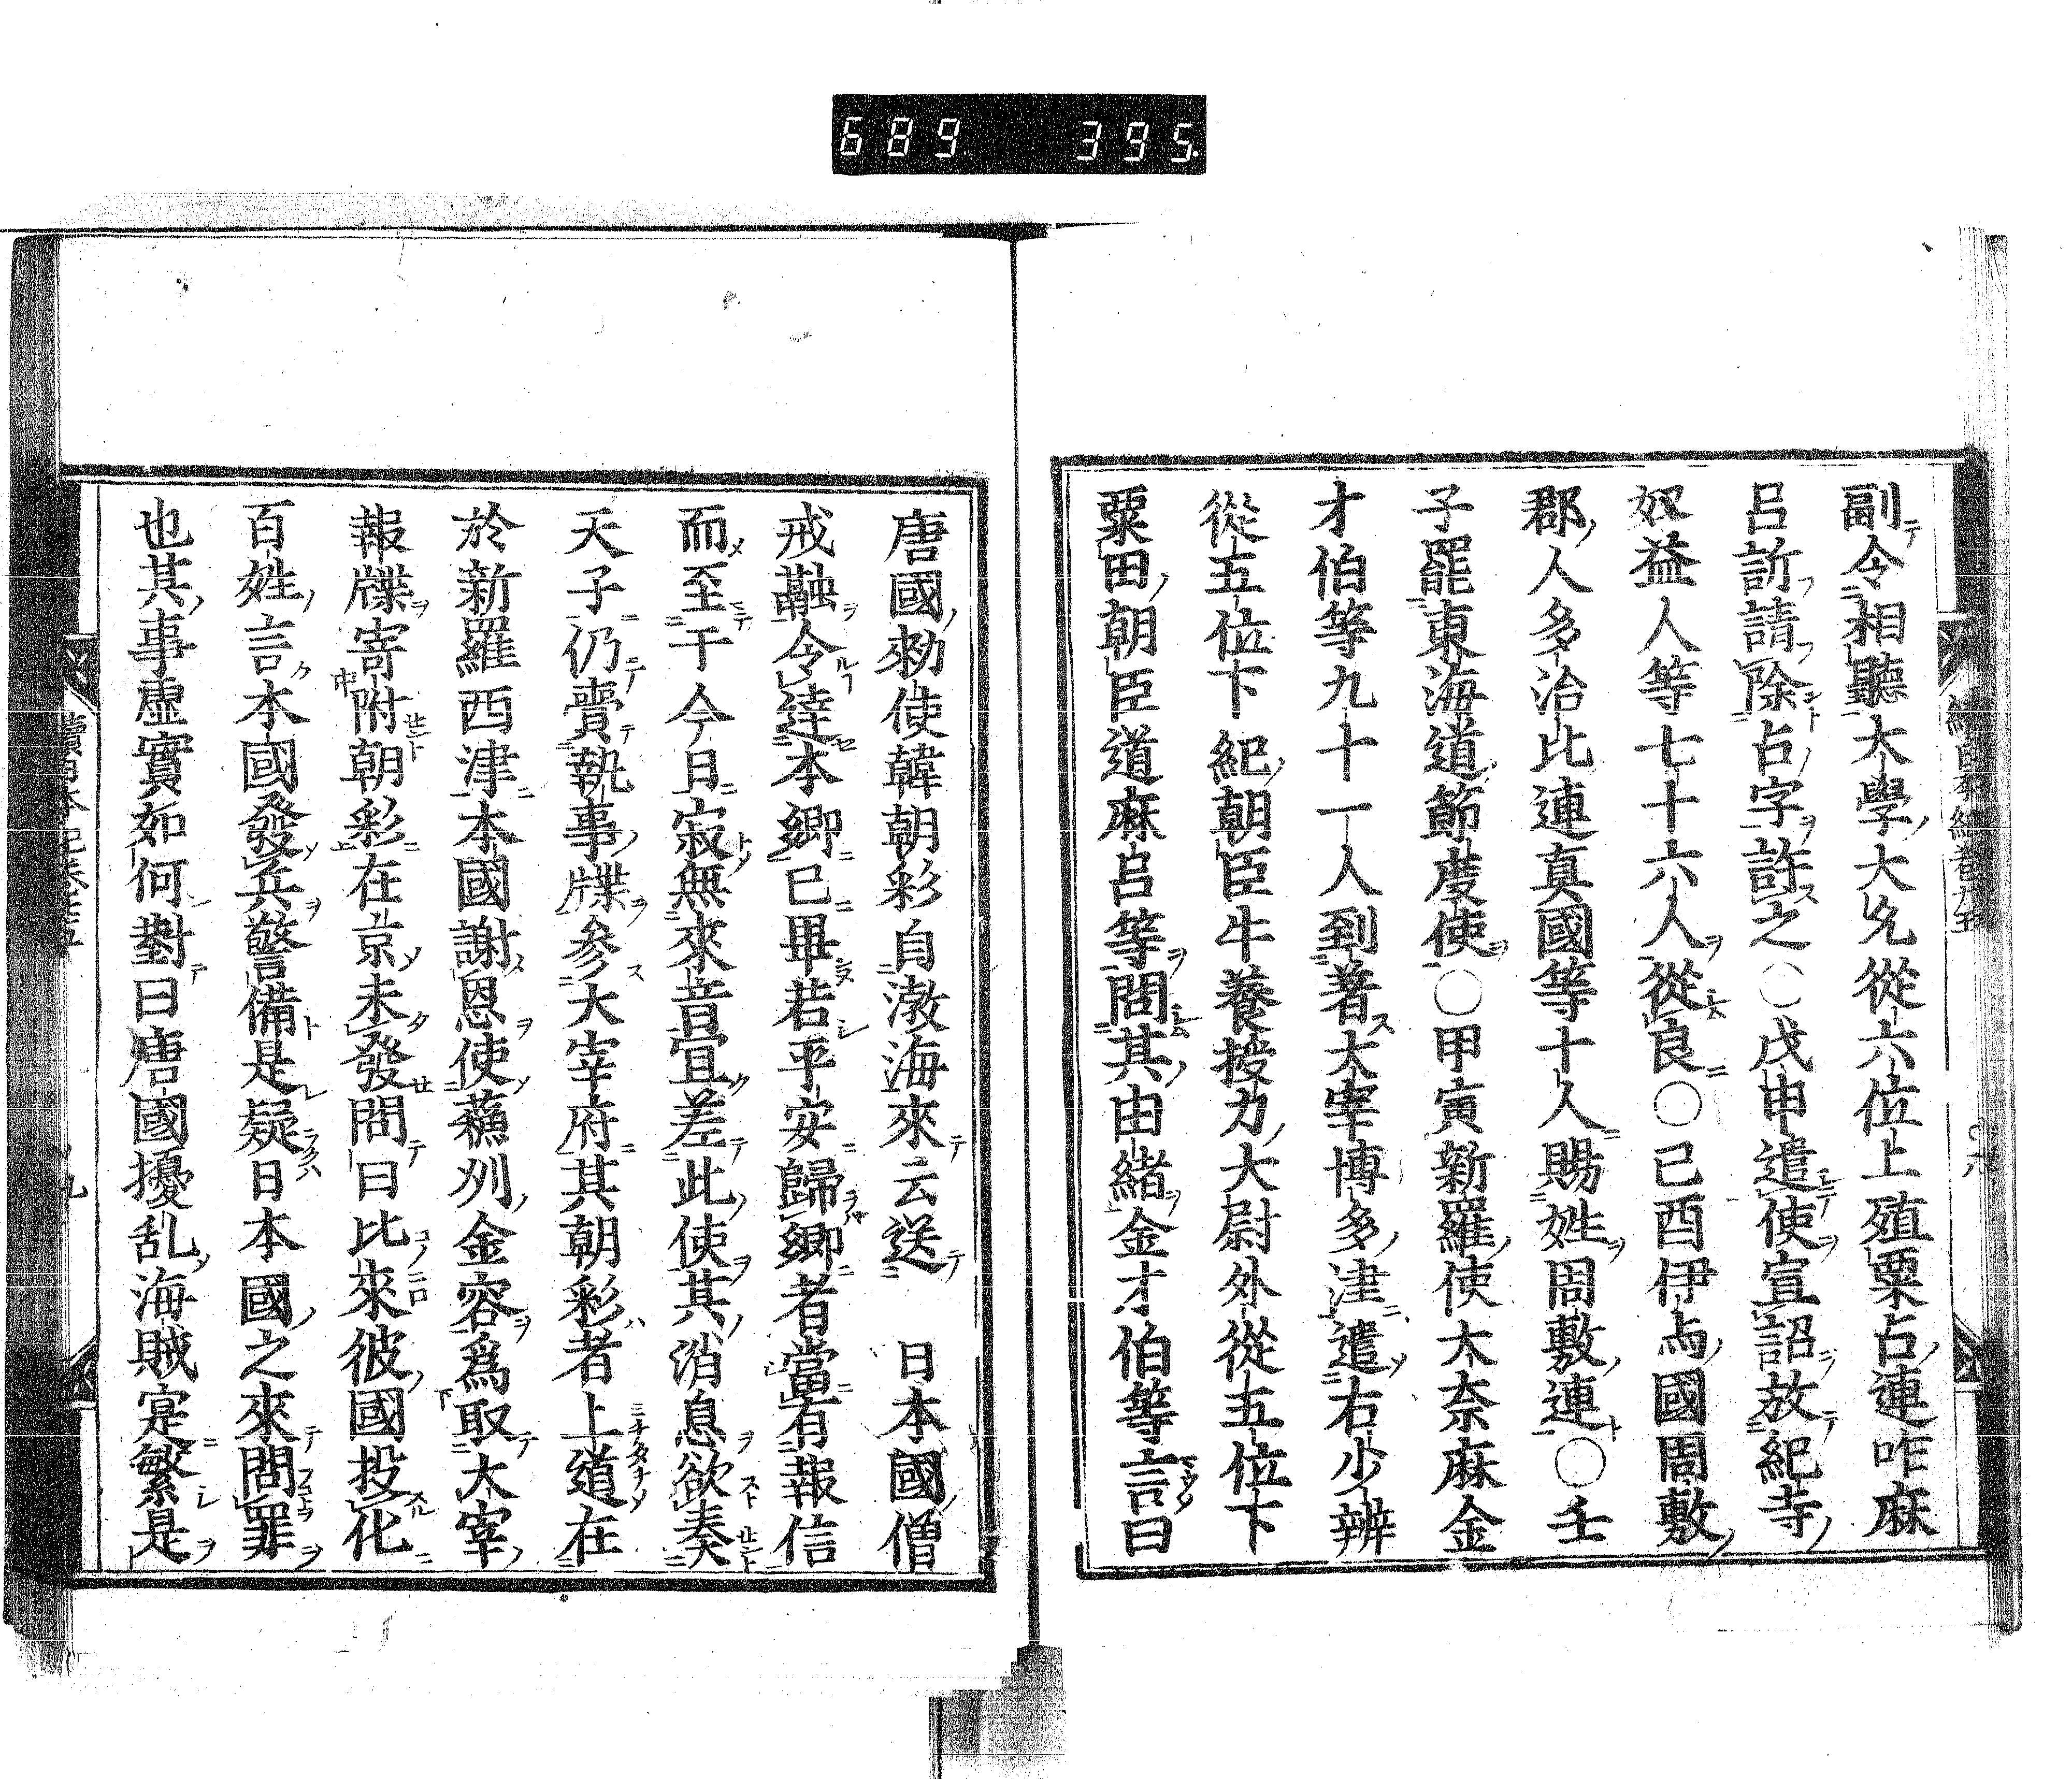 689 395
副令相聽大學大允從六位上殖粟占連咋麻
呂訴請除占字許之〇戊申遣使宣詔放紀寺
奴益人等七十六人從良〇己酉伊与國周敷
郡人多治比連真國等十人賜姓周敷連〇壬
子罷東海道節度使〇甲寅新羅使大奈麻金
才伯等九十一人到著大宰博多津遣右少辨
從五位下紀朝臣牛養授刀大尉外從五位下
粟田朝臣道麻呂等問其由緒金才伯等言曰
唐國勅使韓朝彩自渤海來云送 日本國僧
戒融令達本鄉已畢若平安歸鄉者當有報信
而至于今日寂無來音宜差此使其消息欲奏
天子仍賷執事牒参大宰府其朝彩者上道在
於新羅西津本國謝恩使蘓列金容爲取大宰
報牒寄附朝彩在京未發問曰比來彼國投化
百姓言本國發兵警備是疑日本國之來問罪
也其事虛實如何對曰唐國擾乱海賊寔繁是